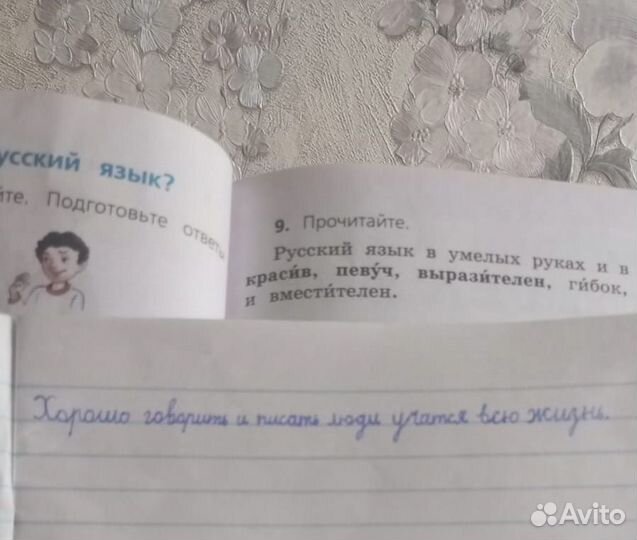 усский язык?
йте. Подготовьте ответы
9. Прочитайте.
Русский язык в умелых руках и в
краси́в, певу́ч, вырази́телен, ги́бок,
и вмести́телен.
Хорошо говорить и писать люди учатся всю жизнь.
Avito